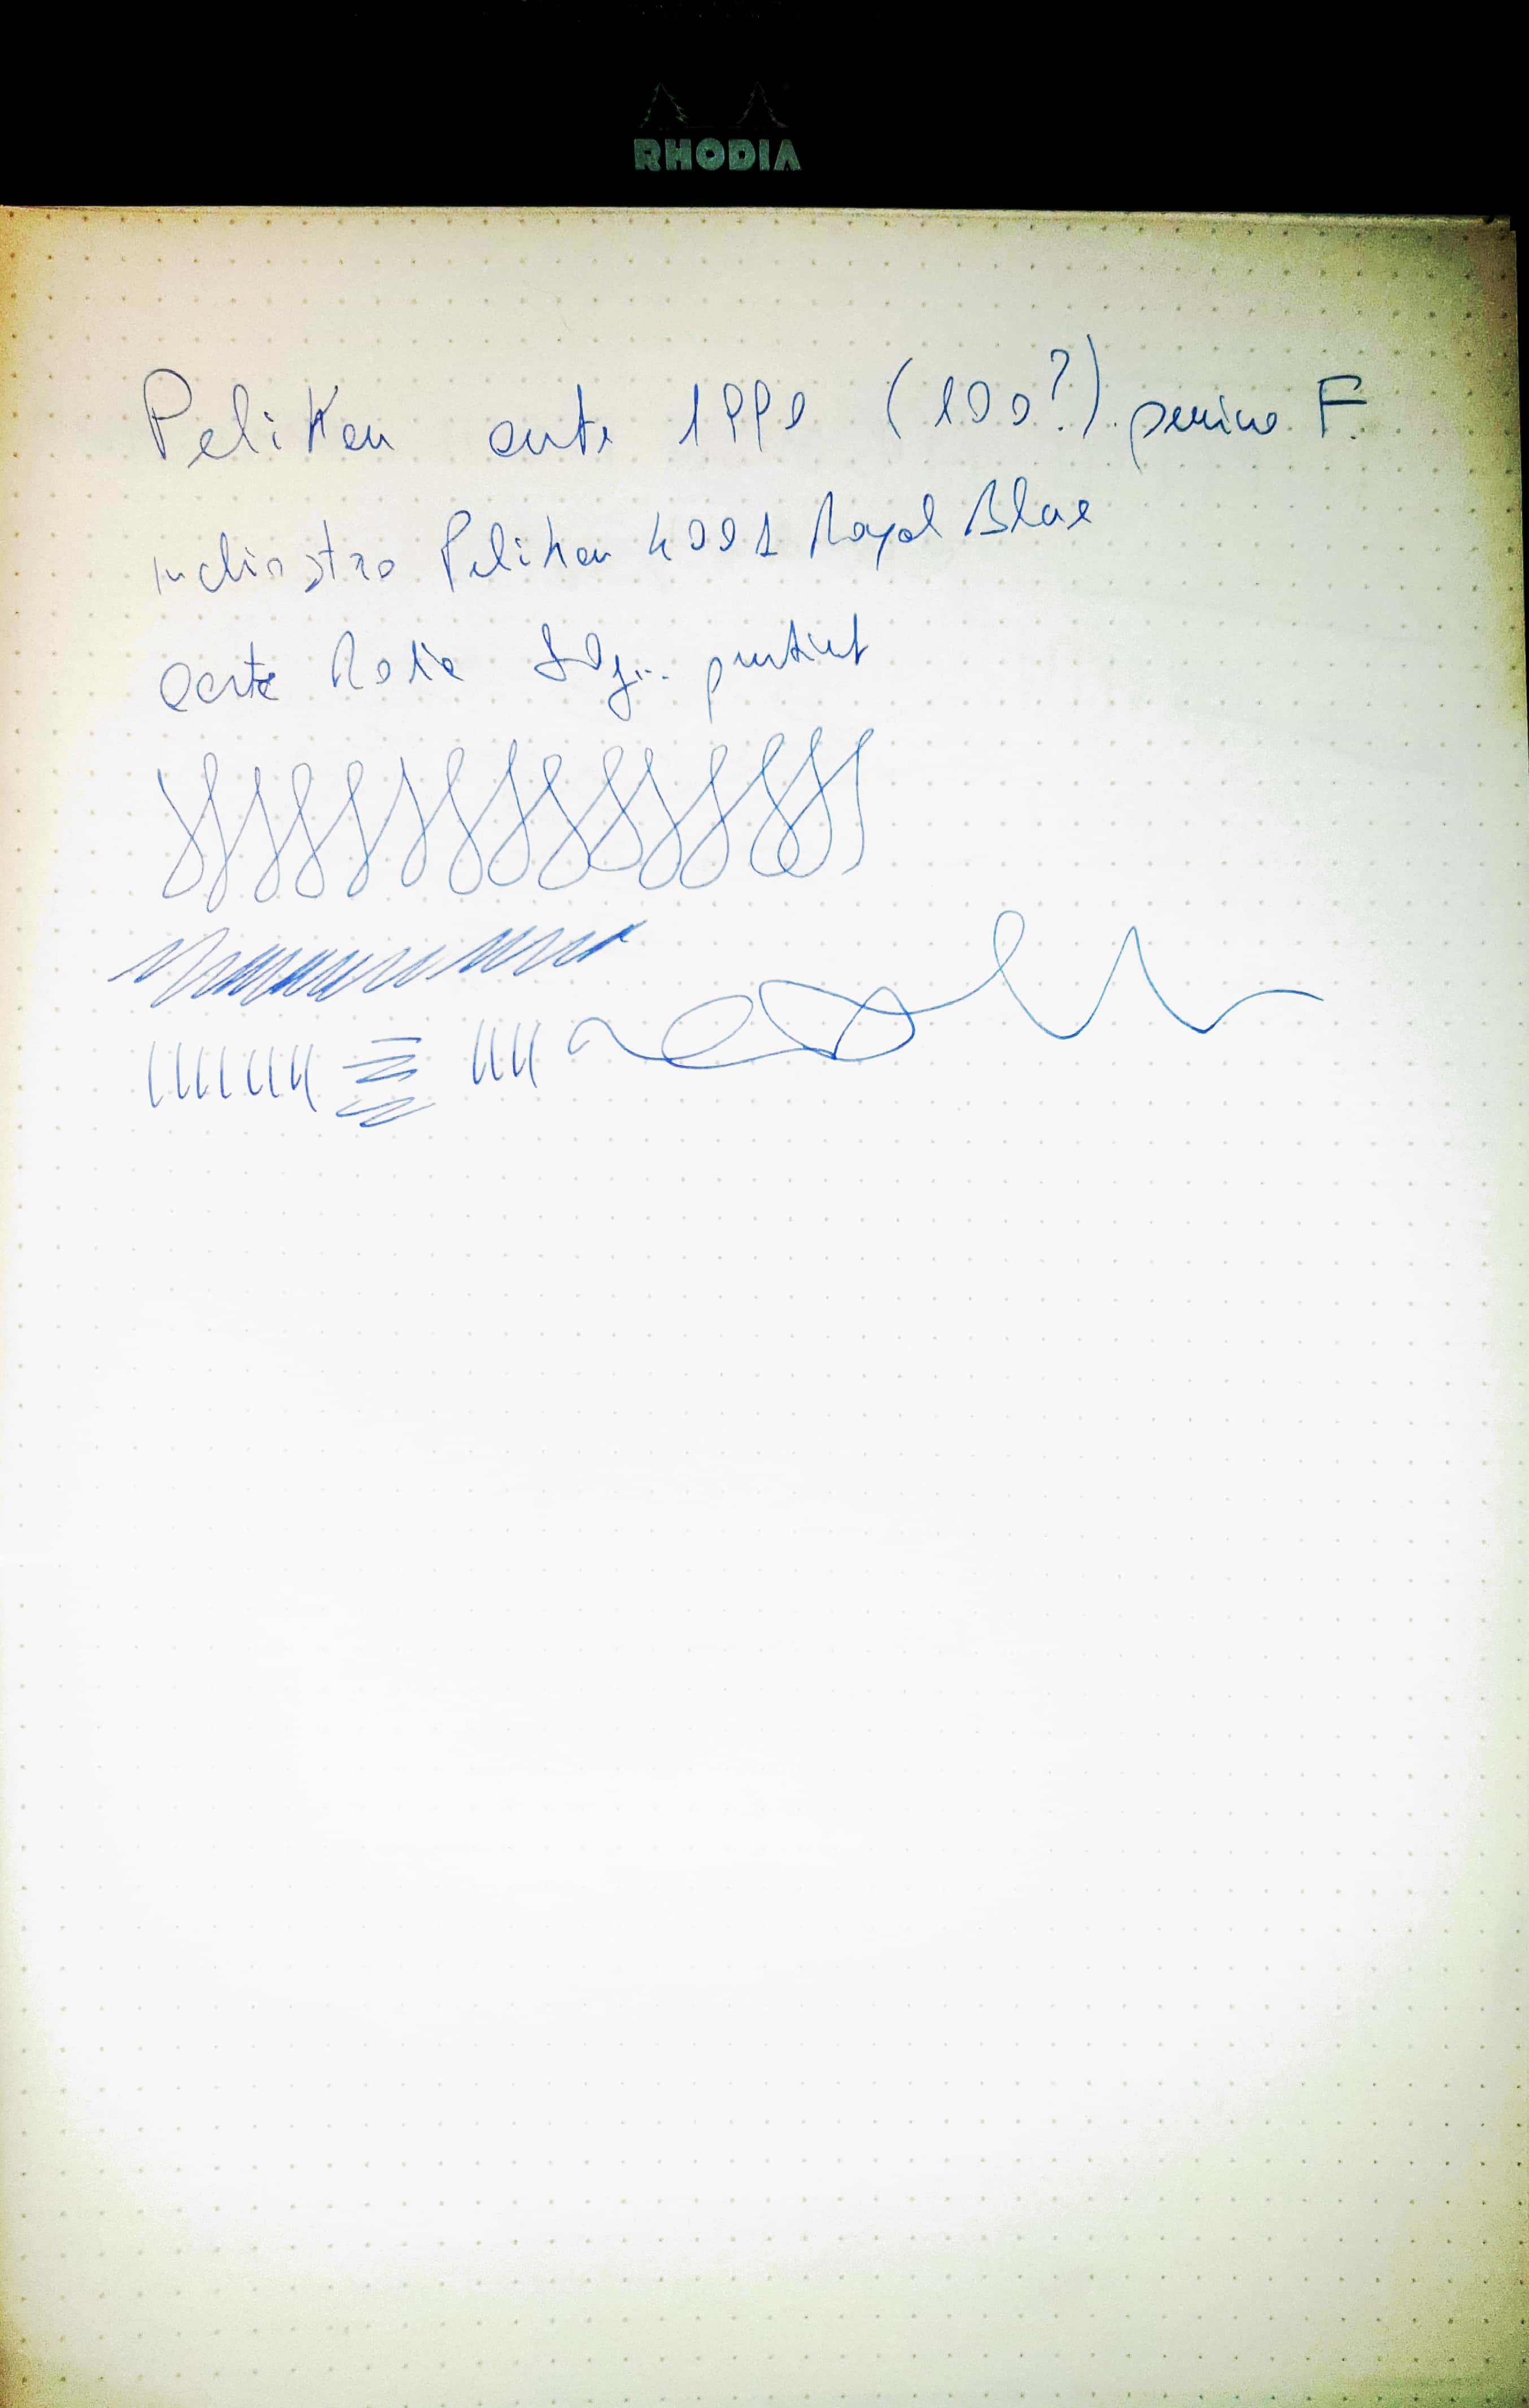 RHODIA
Pelikan ante 1990 (100?) pennino F
inchiostro Pelikan 4001 Royal Blue
carta Rodia 80g... puntinat